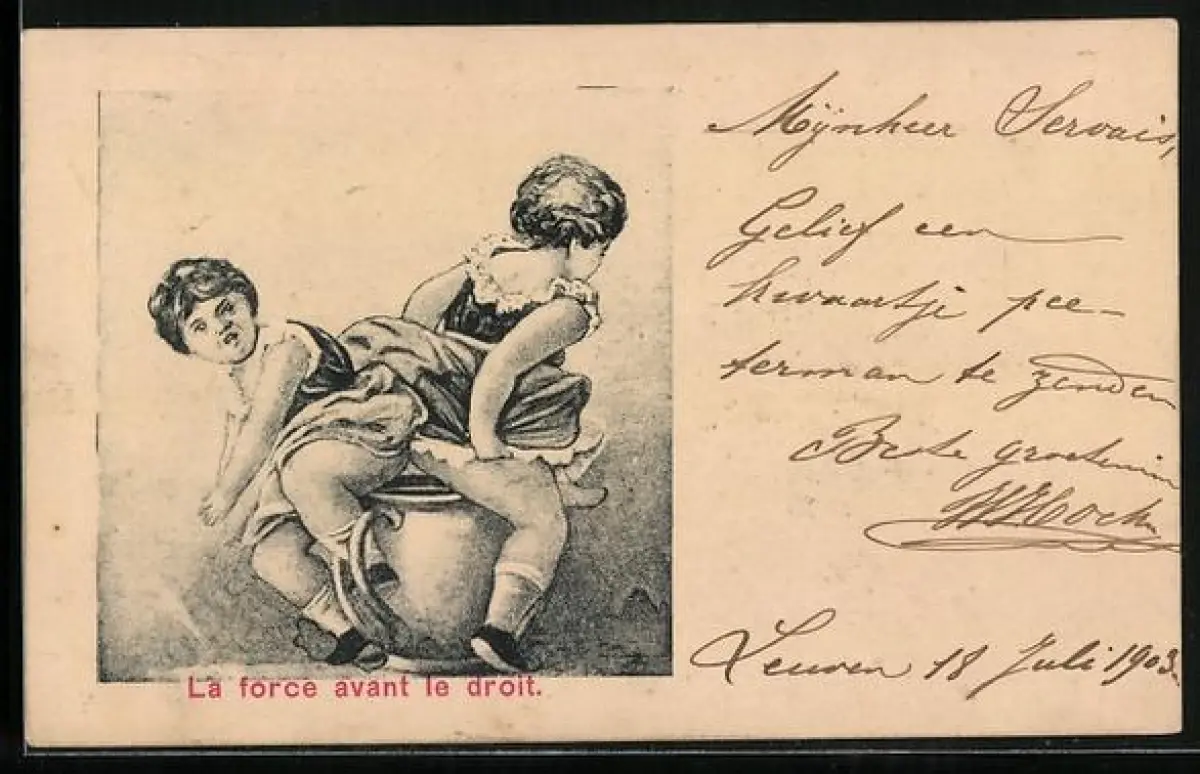 Mijnheer Servais,
Gelief een
kwaartje pee-
terman te zenden
Beste groetenin
Leuven 18 Juli 1903.
La force avant le droit.